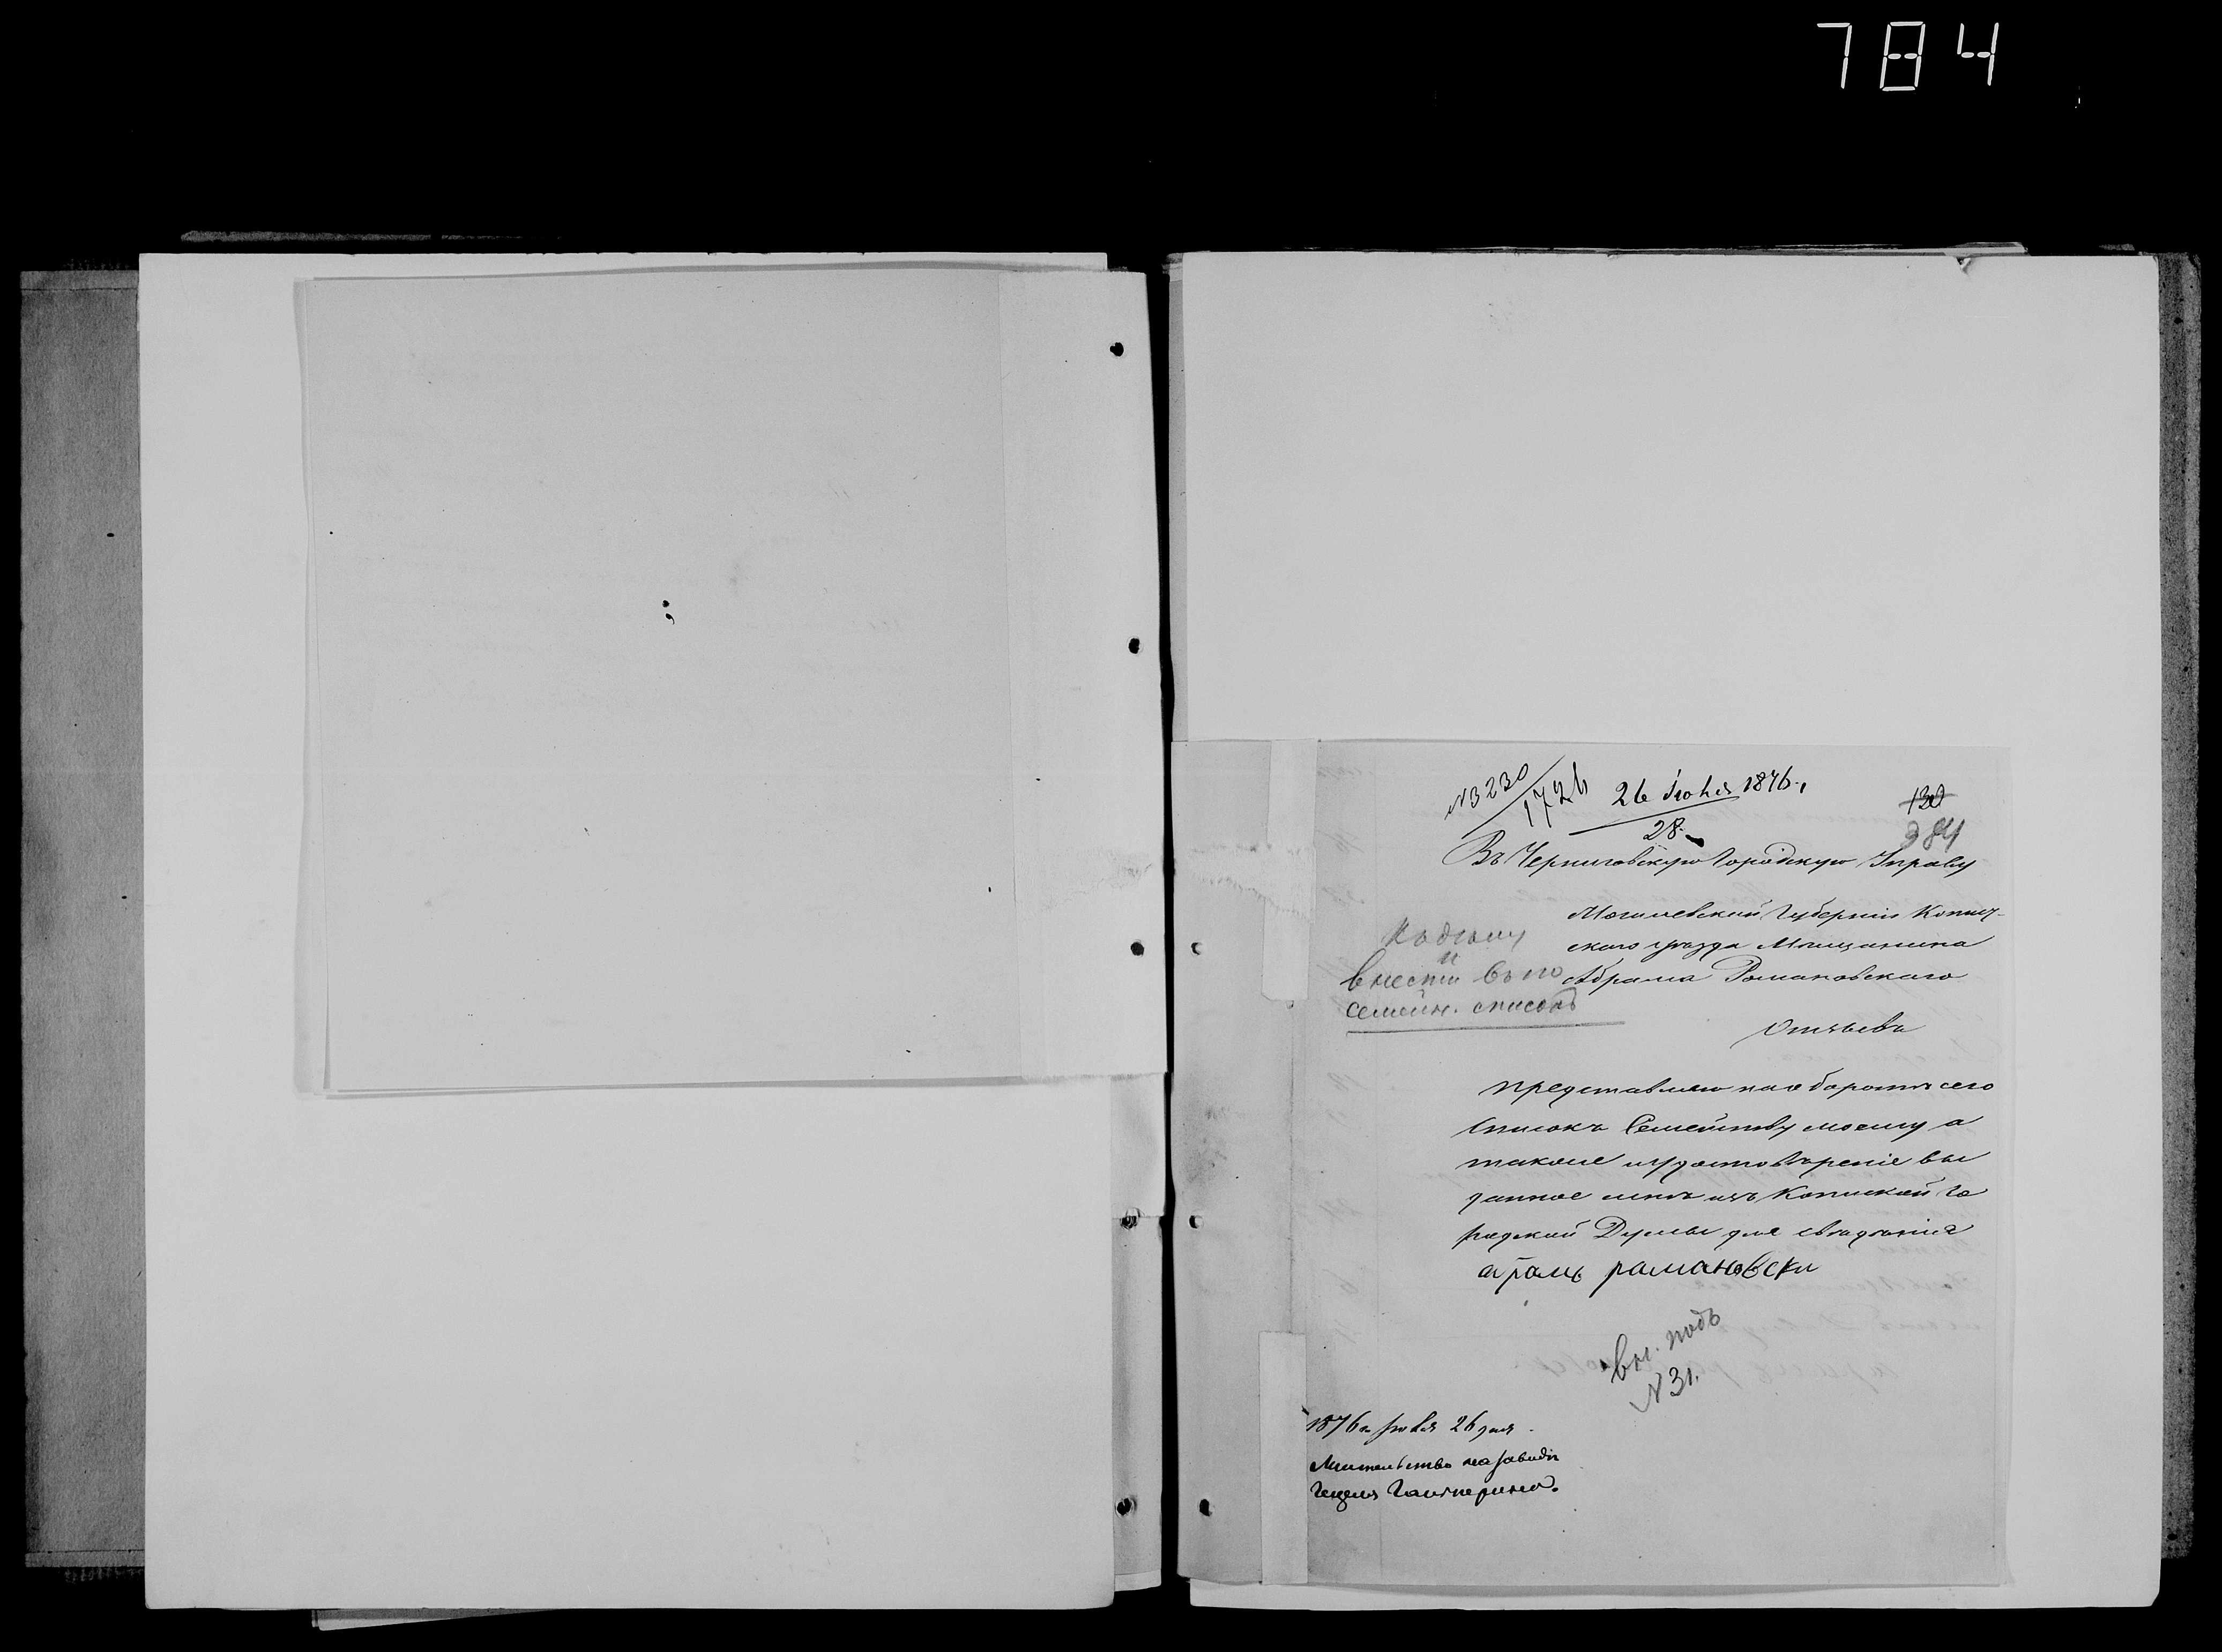 784
№ 3230
1726
26 Июня 1876 г.
28.
130
384
Въ Черниговскую Городскую Управу
Могилевской Губерніи Копыс-
скаго уѣзда Мѣщанина
Абрама Романовскаго
Отзывъ
Къ дѣлу
и
внести въ его
семейн. списокъ
представляю на оборотѣ сего
Списокъ Семейству моему а
также удостовѣреніе вы
данное мнѣ изъ Копыской Го
родской Думы для свѣдѣнія
рамановски
вн. подъ
№ 31.
1876 г. Июня 26 дня.
Жительство на
Гальперина.